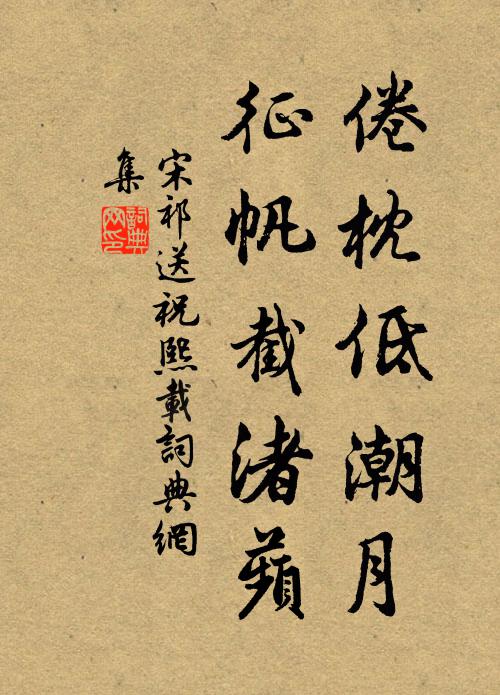 倦枕低潮月
征帆截渚蘋
宋祁送祝熙載詞典網
集
詞典
网印